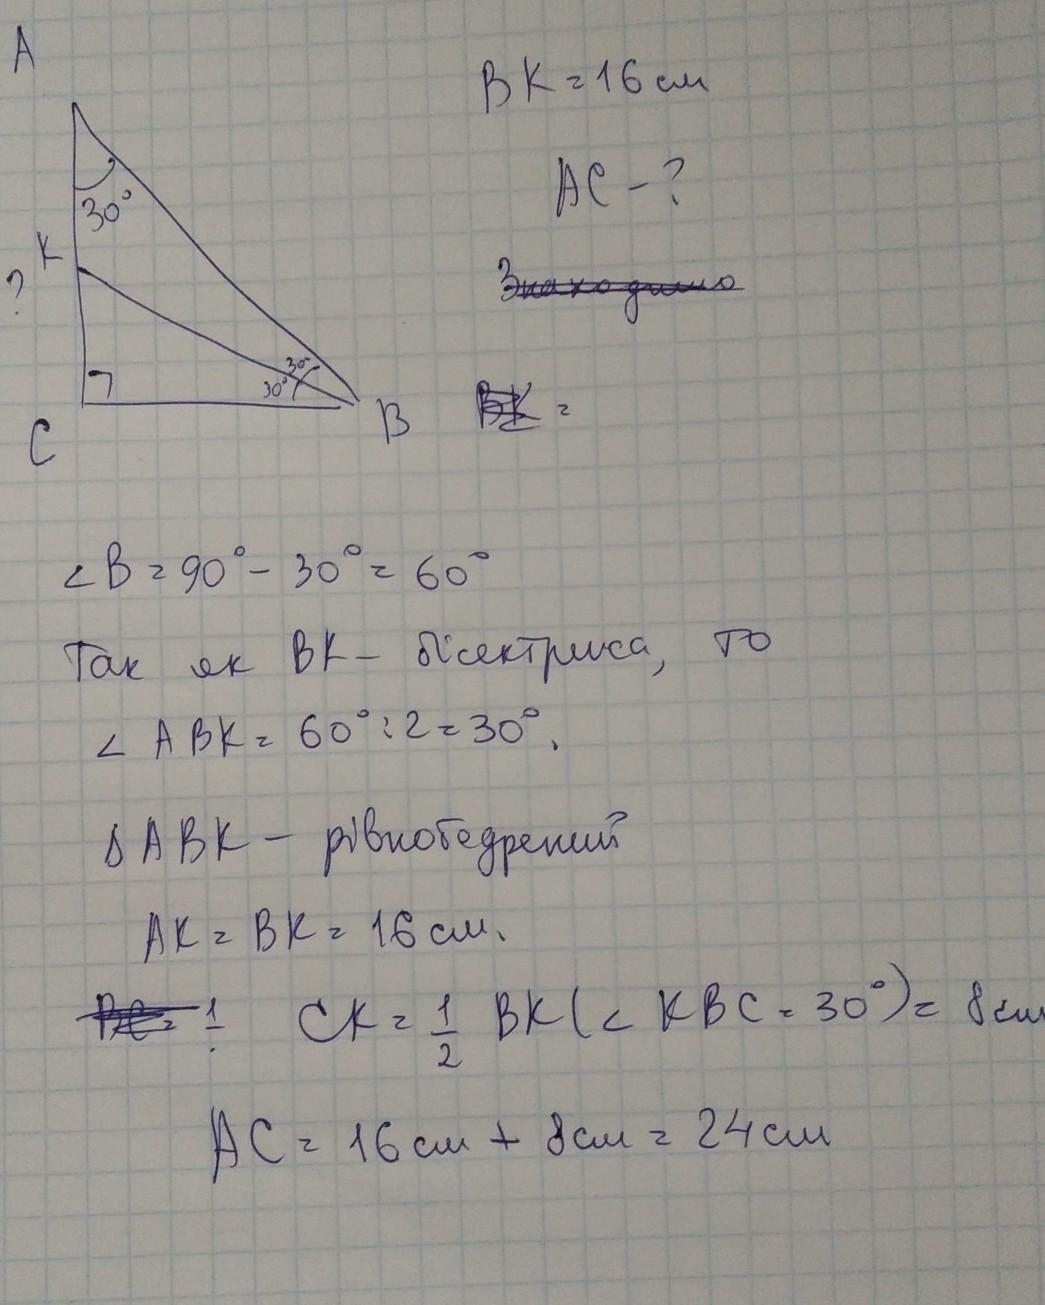 A
BK = 16 см
30°
AC - ?
K
?
Знаходимо
30°
30°
BK =
C
B
∠B = 90° - 30° = 60°
Так як BK - бісектриса, то
∠ABK = 60° : 2 = 30°.
△ABK - рівнобедрений
AK = BK = 16 см.
CK = 1/2 BK (∠KBC = 30°) = 8 см
AC = 16 см + 8 см = 24 см